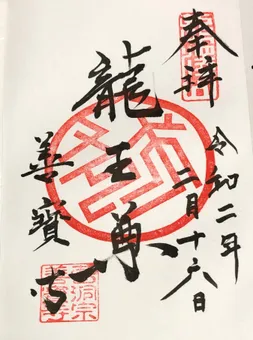 奉拝
令和二年
二月十六日
龍王尊
善寳寺
曹洞宗
善寳寺